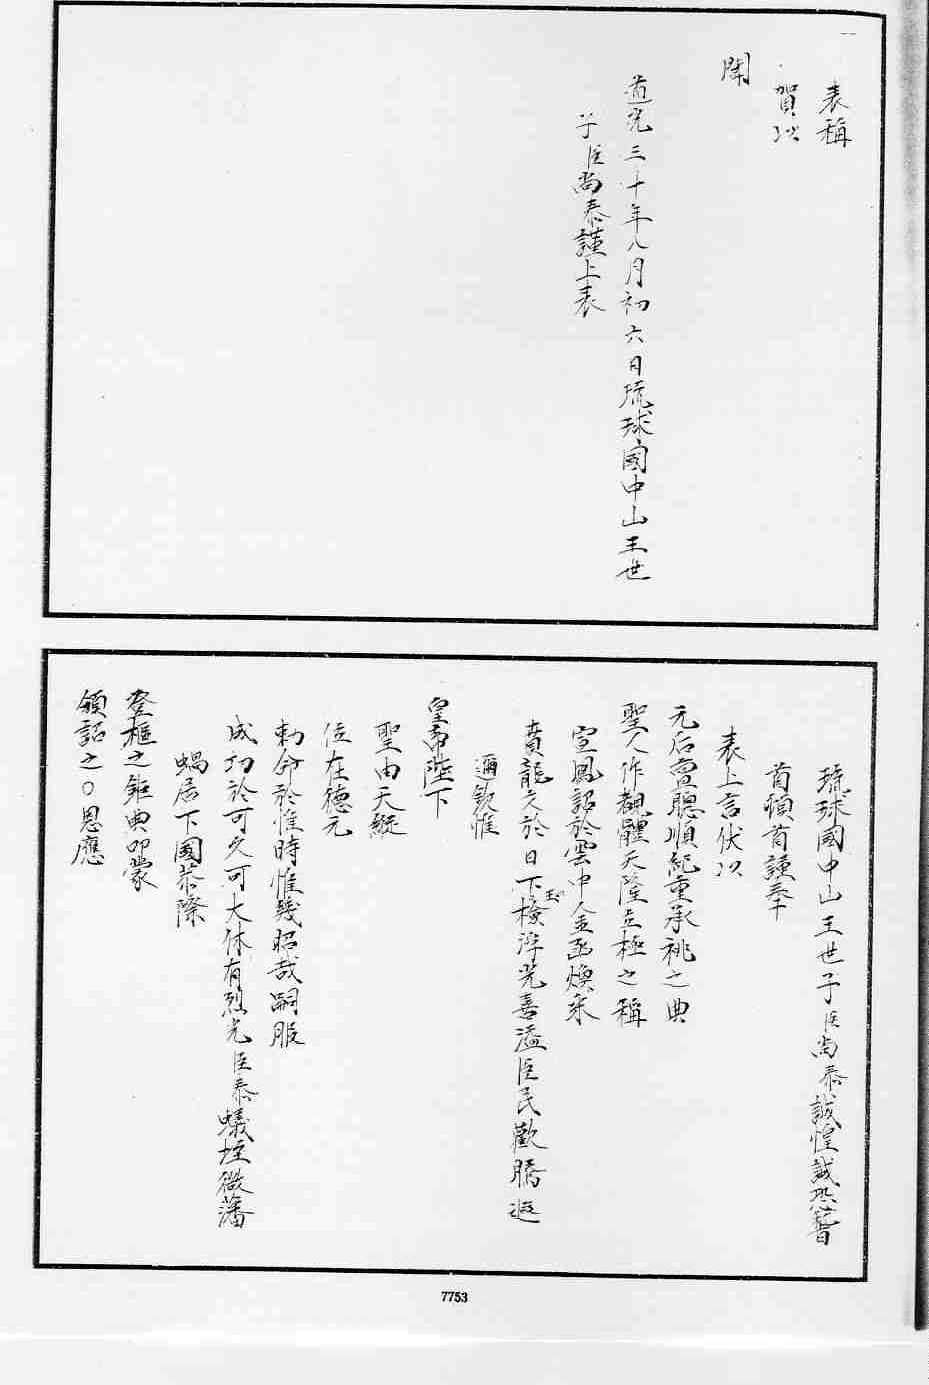 表稱
賀以
聞
道光三十年八月初六日琉球國中山王世
子臣尚泰謹上表
琉球國中山王世子臣尚泰誠惶誠恐稽
首頓首謹奉
表上言伏以
元后亶聰順紀重承祧之典
聖人作覩體天隆立極之稱
宣鳳詔於雲中金函煥采
賁龍文於日下玉檢浮光喜溢臣民歡騰遐
邇欽惟
皇帝陛下
聖由天縱
位在德元
勅命於惟時惟幾昭哉嗣服
成功於可久可大休有烈光臣泰蟻垤微藩
蝸居下國恭際
登樞之鉅典叩蒙
頒詔之〇恩應
7753